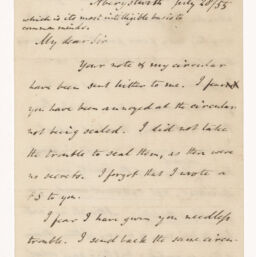 Aberystwith July 20/55
which is its most intelligible basis to
common minds.
My dear Sir
Your note & my circular
have been sent hither to me. I fear
you have been annoyed at the circular
not being sealed. I did not take
the trouble to seal them, as there were
no secrets. I forgot that I wrote a
PS to you.
I fear I have given you needless
trouble. I send back the same circu-